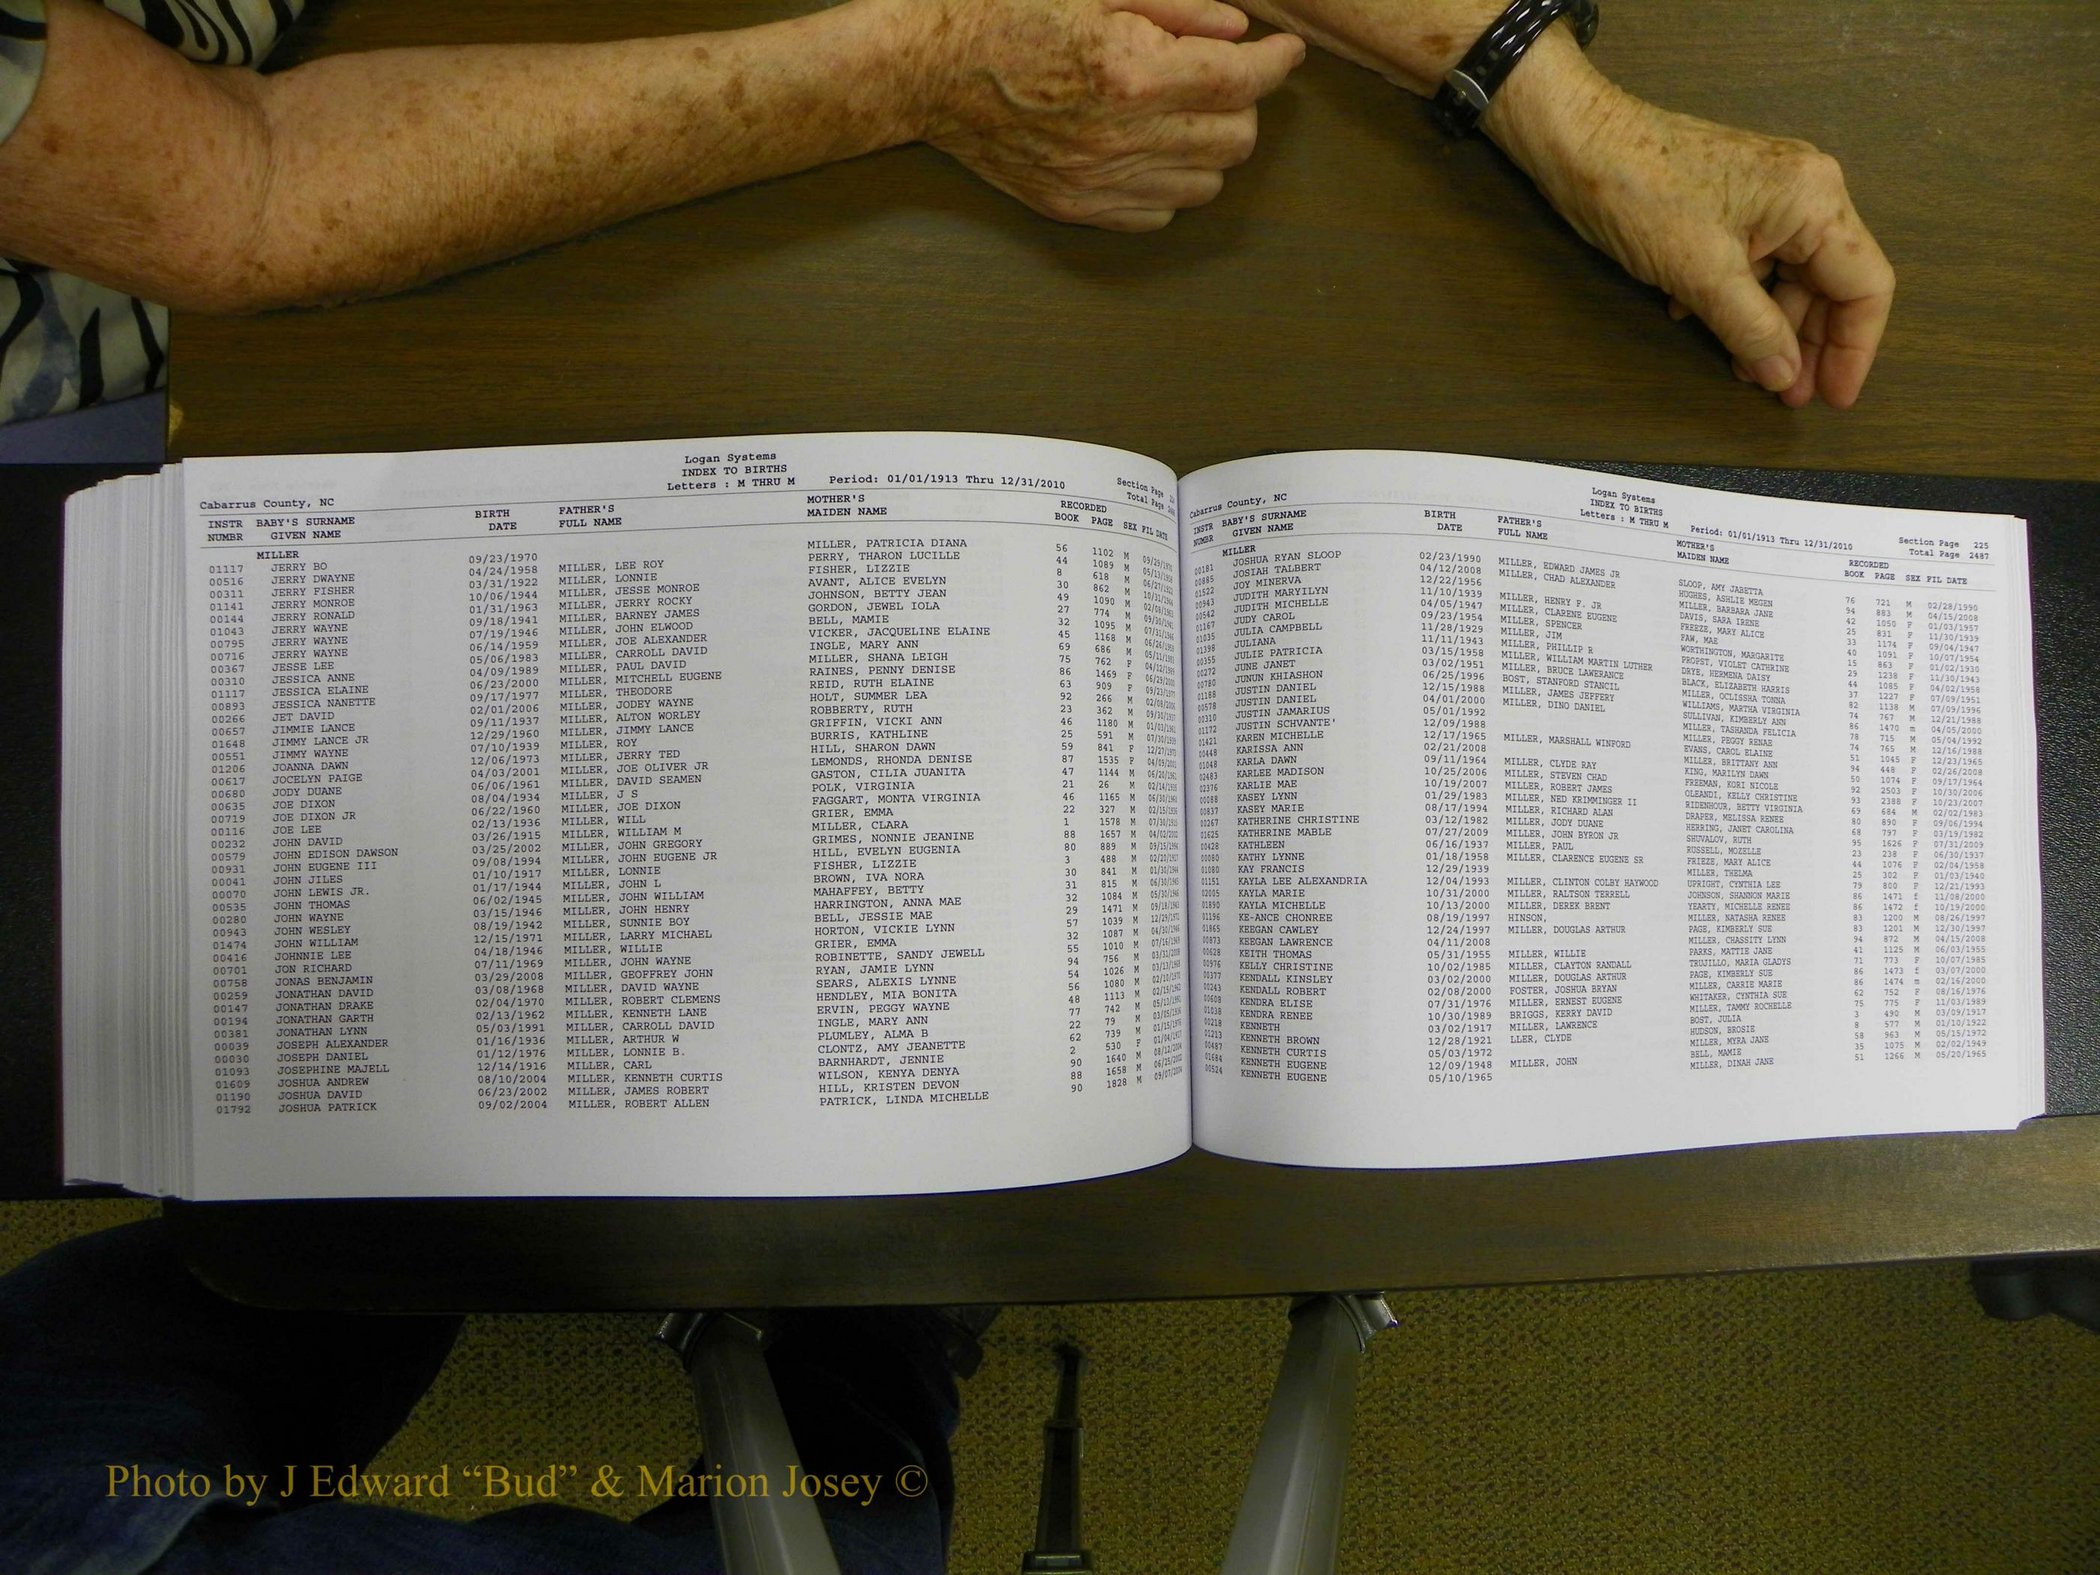 Logan Systems
INDEX TO BIRTHS
Letters : M THRU M
Period: 01/01/1913 Thru 12/31/2010
Section Page
Total Page
Cabarrus County, NC
INSTR BABY'S SURNAME BIRTH FATHER'S MOTHER'S RECORDED
NUMBR GIVEN NAME DATE FULL NAME MAIDEN NAME BOOK PAGE SEX FIL DATE
MILLER
01117 JERRY BO 09/23/1970 MILLER, PATRICIA DIANA 56 1102 M 09/29/1970
00516 JERRY DWAYNE 04/24/1958 MILLER, LEE ROY PERRY, THARON LUCILLE 44 1089 M 05/13/1958
00311 JERRY FISHER 03/31/1922 MILLER, LONNIE FISHER, LIZZIE 8 618 M
01141 JERRY MONROE 10/06/1944 MILLER, JESSE MONROE AVANT, ALICE EVELYN 30 862 M
00144 JERRY RONALD 01/31/1963 MILLER, JERRY ROCKY JOHNSON, BETTY JEAN 49 1090 M
01043 JERRY WAYNE 09/18/1941 MILLER, BARNEY JAMES GORDON, JEWEL IOLA 27 774 M
00795 JERRY WAYNE 07/19/1946 MILLER, JOHN ELWOOD BELL, MAMIE 32 1095 M
00716 JERRY WAYNE 06/14/1959 MILLER, JOE ALEXANDER VICKER, JACQUELINE ELAINE 45 1168 M
00367 JESSE LEE 05/06/1983 MILLER, CARROLL DAVID INGLE, MARY ANN 69 686 M
00310 JESSICA ANNE 04/09/1989 MILLER, PAUL DAVID MILLER, SHANA LEIGH 75 762 F
01117 JESSICA ELAINE 06/23/2000 MILLER, MITCHELL EUGENE RAINES, PENNY DENISE 86 1469 F
00893 JESSICA NANETTE 09/17/1977 MILLER, THEODORE REID, RUTH ELAINE 63 909 F
00266 JET DAVID 02/01/2006 MILLER, JODEY WAYNE HOLT, SUMMER LEA 92 266 M
00657 JIMMIE LANCE 09/11/1937 MILLER, ALTON WORLEY ROBBERTY, RUTH 23 362 M
01648 JIMMY LANCE JR 12/29/1960 MILLER, JIMMY LANCE GRIFFIN, VICKI ANN 46 1180 M
00551 JIMMY WAYNE 07/10/1939 MILLER, ROY BURRIS, KATHLINE 25 591 M
01206 JOANNA DAWN 12/06/1973 MILLER, JERRY TED HILL, SHARON DAWN 59 841 F
00617 JOCELYN PAIGE 04/03/2001 MILLER, JOE OLIVER JR LEMONDS, RHONDA DENISE 87 1535 F
00680 JODY DUANE 06/06/1961 MILLER, DAVID SEAMEN GASTON, CILIA JUANITA 47 1144 M
00635 JOE DIXON 08/04/1934 MILLER, J S POLK, VIRGINIA 21 26 M
00719 JOE DIXON JR 06/22/1960 MILLER, JOE DIXON FAGGART, MONTA VIRGINIA 46 1165 M
00116 JOE LEE 02/13/1936 MILLER, WILL GRIER, EMMA 22 327 M
00232 JOHN DAVID 03/26/1915 MILLER, WILLIAM M MILLER, CLARA 1 1578 M
00579 JOHN EDISON DAWSON 03/25/2002 MILLER, JOHN GREGORY GRIMES, NONNIE JEANINE 88 1657 M
00931 JOHN EUGENE III 09/08/1994 MILLER, JOHN EUGENE JR HILL, EVELYN EUGENIA 80 889 M
00041 JOHN JILES 01/10/1917 MILLER, LONNIE FISHER, LIZZIE 3 488 M
00070 JOHN LEWIS JR. 01/17/1944 MILLER, JOHN L BROWN, IVA NORA 30 841 M
00535 JOHN THOMAS 06/02/1945 MILLER, JOHN WILLIAM MAHAFFEY, BETTY 31 815 M
00280 JOHN WAYNE 03/15/1946 MILLER, JOHN HENRY HARRINGTON, ANNA MAE 32 1084 M
00943 JOHN WESLEY 08/19/1942 MILLER, SUNNIE BOY BELL, JESSIE MAE 29 1471 M
01474 JOHN WILLIAM 12/15/1971 MILLER, LARRY MICHAEL HORTON, VICKIE LYNN 57 1039 M
00416 JOHNNIE LEE 04/18/1946 MILLER, WILLIE GRIER, EMMA 32 1087 M
00701 JON RICHARD 07/11/1969 MILLER, JOHN WAYNE ROBINETTE, SANDY JEWELL 55 1010 M
00758 JONAS BENJAMIN 03/29/2008 MILLER, GEOFFREY JOHN RYAN, JAMIE LYNN 94 756 M
00259 JONATHAN DAVID 03/08/1968 MILLER, DAVID WAYNE SEARS, ALEXIS LYNNE 54 1026 M
00147 JONATHAN DRAKE 02/04/1970 MILLER, ROBERT CLEMENS HENDLEY, MIA BONITA 56 1080 M
00194 JONATHAN GARTH 02/13/1962 MILLER, KENNETH LANE ERVIN, PEGGY WAYNE 48 1113 M
00381 JONATHAN LYNN 05/03/1991 MILLER, CARROLL DAVID INGLE, MARY ANN 77 742 M
00039 JOSEPH ALEXANDER 01/16/1936 MILLER, ARTHUR W PLUMLEY, ALMA B 22 79 M
00030 JOSEPH DANIEL 01/12/1976 MILLER, LONNIE B. CLONTZ, AMY JEANETTE 62 739 M
01093 JOSEPHINE MAJELL 12/14/1916 MILLER, CARL BARNHARDT, JENNIE 2 530 F
01609 JOSHUA ANDREW 08/10/2004 MILLER, KENNETH CURTIS WILSON, KENYA DENYA 90 1640 M
01190 JOSHUA DAVID 06/23/2002 MILLER, JAMES ROBERT HILL, KRISTEN DEVON 88 1658 M
01792 JOSHUA PATRICK 09/02/2004 MILLER, ROBERT ALLEN PATRICK, LINDA MICHELLE 90 1828 M 09/07/2004
Logan Systems
INDEX TO BIRTHS
Letters : M THRU M
Period: 01/01/1913 Thru 12/31/2010
Section Page 225
Total Page 2487
Cabarrus County, NC
INSTR BABY'S SURNAME BIRTH FATHER'S MOTHER'S RECORDED
NUMBR GIVEN NAME DATE FULL NAME MAIDEN NAME BOOK PAGE SEX FIL DATE
MILLER
00181 JOSHUA RYAN SLOOP 02/23/1990 MILLER, EDWARD JAMES JR SLOOP, AMY JABETTA 76 721 M 02/28/1990
00885 JOSIAH TALBERT 04/12/2008 MILLER, CHAD ALEXANDER HUGHES, ASHLIE MEGEN 94 883 M 04/15/2008
01522 JOY MINERVA 12/22/1956 MILLER, BARBARA JANE 42 1050 F 01/03/1957
00943 JUDITH MARYILYN 11/10/1939 MILLER, HENRY F. JR DAVIS, SARA IRENE 25 831 F 11/30/1939
00542 JUDITH MICHELLE 04/05/1947 MILLER, CLARENE EUGENE FREEZE, MARY ALICE 33 1174 F 09/04/1947
01167 JUDY CAROL 09/23/1954 MILLER, SPENCER FAW, MAE 40 1091 F 10/07/1954
01035 JULIA CAMPBELL 11/28/1929 MILLER, JIM WORTHINGTON, MARGARITE 15 863 F 01/02/1930
01398 JULIANA 11/11/1943 MILLER, PHILLIP R PROPST, VIOLET CATHRINE 29 1238 F 11/30/1943
00355 JULIE PATRICIA 03/15/1958 MILLER, WILLIAM MARTIN LUTHER DRYE, HERMENA DAISY 44 1085 F 04/02/1958
00272 JUNE JANET 03/02/1951 MILLER, BRUCE LAWERANCE BLACK, ELIZABETH HARRIS 37 1227 F 07/09/1951
00780 JUNUN KHIASHON 06/25/1996 BOST, STANFORD STANCIL MILLER, OCLISSHA TONNA 82 1138 M 07/09/1996
01188 JUSTIN DANIEL 12/15/1988 MILLER, JAMES JEFFERY WILLIAMS, MARTHA VIRGINIA 74 767 M 12/21/1988
00578 JUSTIN DANIEL 04/01/2000 MILLER, DINO DANIEL SULLIVAN, KIMBERLY ANN 86 1470 m 04/05/2000
00310 JUSTIN JAMARIUS 05/01/1992 MILLER, TASHANDA FELICIA 78 715 M 05/04/1992
01172 JUSTIN SCHVANTE' 12/09/1988 MILLER, PEGGY RENAE 74 765 M 12/16/1988
01421 KAREN MICHELLE 12/17/1965 MILLER, MARSHALL WINFORD EVANS, CAROL ELAINE 51 1045 F 12/23/1965
00448 KARISSA ANN 02/21/2008 MILLER, BRITTANY ANN 94 448 F 02/26/2008
01048 KARLA DAWN 09/11/1964 MILLER, CLYDE RAY KING, MARILYN DAWN 50 1074 F 09/17/1964
02483 KARLEE MADISON 10/25/2006 MILLER, STEVEN CHAD FREEMAN, KORI NICOLE 92 2503 F 10/30/2006
02376 KARLIE MAE 10/19/2007 MILLER, ROBERT JAMES OLEANDI, KELLY CHRISTINE 93 2388 F 10/23/2007
00088 KASEY LYNN 01/29/1983 MILLER, NED KRIMMINGER II RIDENHOUR, BETTY VIRGINIA 69 684 M 02/02/1983
00837 KASEY MARIE 08/17/1994 MILLER, RICHARD ALAN DRAPER, MELISSA RENEE 80 890 F 09/06/1994
00267 KATHERINE CHRISTINE 03/12/1982 MILLER, JODY DUANE HERRING, JANET CAROLINA 68 797 F 03/19/1982
01625 KATHERINE MABLE 07/27/2009 MILLER, JOHN BYRON JR SHUVALOV, RUTH 95 1626 F 07/31/2009
00428 KATHLEEN 06/16/1937 MILLER, PAUL RUSSELL, MOZELLE 23 238 F 06/30/1937
00080 KATHY LYNNE 01/18/1958 MILLER, CLARENCE EUGENE SR FRIEZE, MARY ALICE 44 1076 F 02/04/1958
01080 KAY FRANCIS 12/29/1939 MILLER, THELMA 25 302 F 01/03/1940
01151 KAYLA LEE ALEXANDRIA 12/04/1993 MILLER, CLINTON COLBY HAYWOOD UPRIGHT, CYNTHIA LEE 79 800 F 12/21/1993
02005 KAYLA MARIE 10/31/2000 MILLER, RALTSON TERRELL JOHNSON, SHANNON MARIE 86 1471 f 11/08/2000
01890 KAYLA MICHELLE 10/13/2000 MILLER, DEREK BRENT YEARTY, MICHELLE RENEE 86 1472 f 10/19/2000
01196 KE-ANCE CHONREE 08/19/1997 HINSON, MILLER, NATASHA RENEE 83 1200 M 08/26/1997
01865 KEEGAN CAWLEY 12/24/1997 MILLER, DOUGLAS ARTHUR PAGE, KIMBERLY SUE 83 1201 M 12/30/1997
00873 KEEGAN LAWRENCE 04/11/2008 MILLER, CHASSITY LYNN 94 872 M 04/15/2008
00628 KEITH THOMAS 05/31/1955 MILLER, WILLIE PARKS, MATTIE JANE 41 1125 M 06/03/1955
00976 KELLY CHRISTINE 10/02/1985 MILLER, CLAYTON RANDALL TRUJILLO, MARIA GLADYS 71 773 F 10/07/1985
00377 KENDALL KINSLEY 03/02/2000 MILLER, DOUGLAS ARTHUR PAGE, KIMBERLY SUE 86 1473 f 03/07/2000
00243 KENDALL ROBERT 02/08/2000 FOSTER, JOSHUA BRYAN MILLER, CARRIE MARIE 86 1474 m 02/16/2000
00608 KENDRA ELISE 07/31/1976 MILLER, ERNEST EUGENE WHITAKER, CYNTHIA SUE 62 752 F 08/16/1976
01038 KENDRA RENEE 10/30/1989 BRIGGS, KERRY DAVID MILLER, TAMMY ROCHELLE 75 775 F 11/03/1989
00218 KENNETH 03/02/1917 MILLER, LAWRENCE BOST, JULIA 3 490 M 03/09/1917
01213 KENNETH BROWN 12/28/1921 LLER, CLYDE HUDSON, BROSIE 8 577 M 01/10/1922
00487 KENNETH CURTIS 05/03/1972 MILLER, MYRA JANE 58 963 M 05/15/1972
01684 KENNETH EUGENE 12/09/1948 MILLER, JOHN BELL, MAMIE 35 1075 M 02/02/1949
00524 KENNETH EUGENE 05/10/1965 MILLER, DINAH JANE 51 1266 M 05/20/1965
Photo by J Edward “Bud” & Marion Josey ©